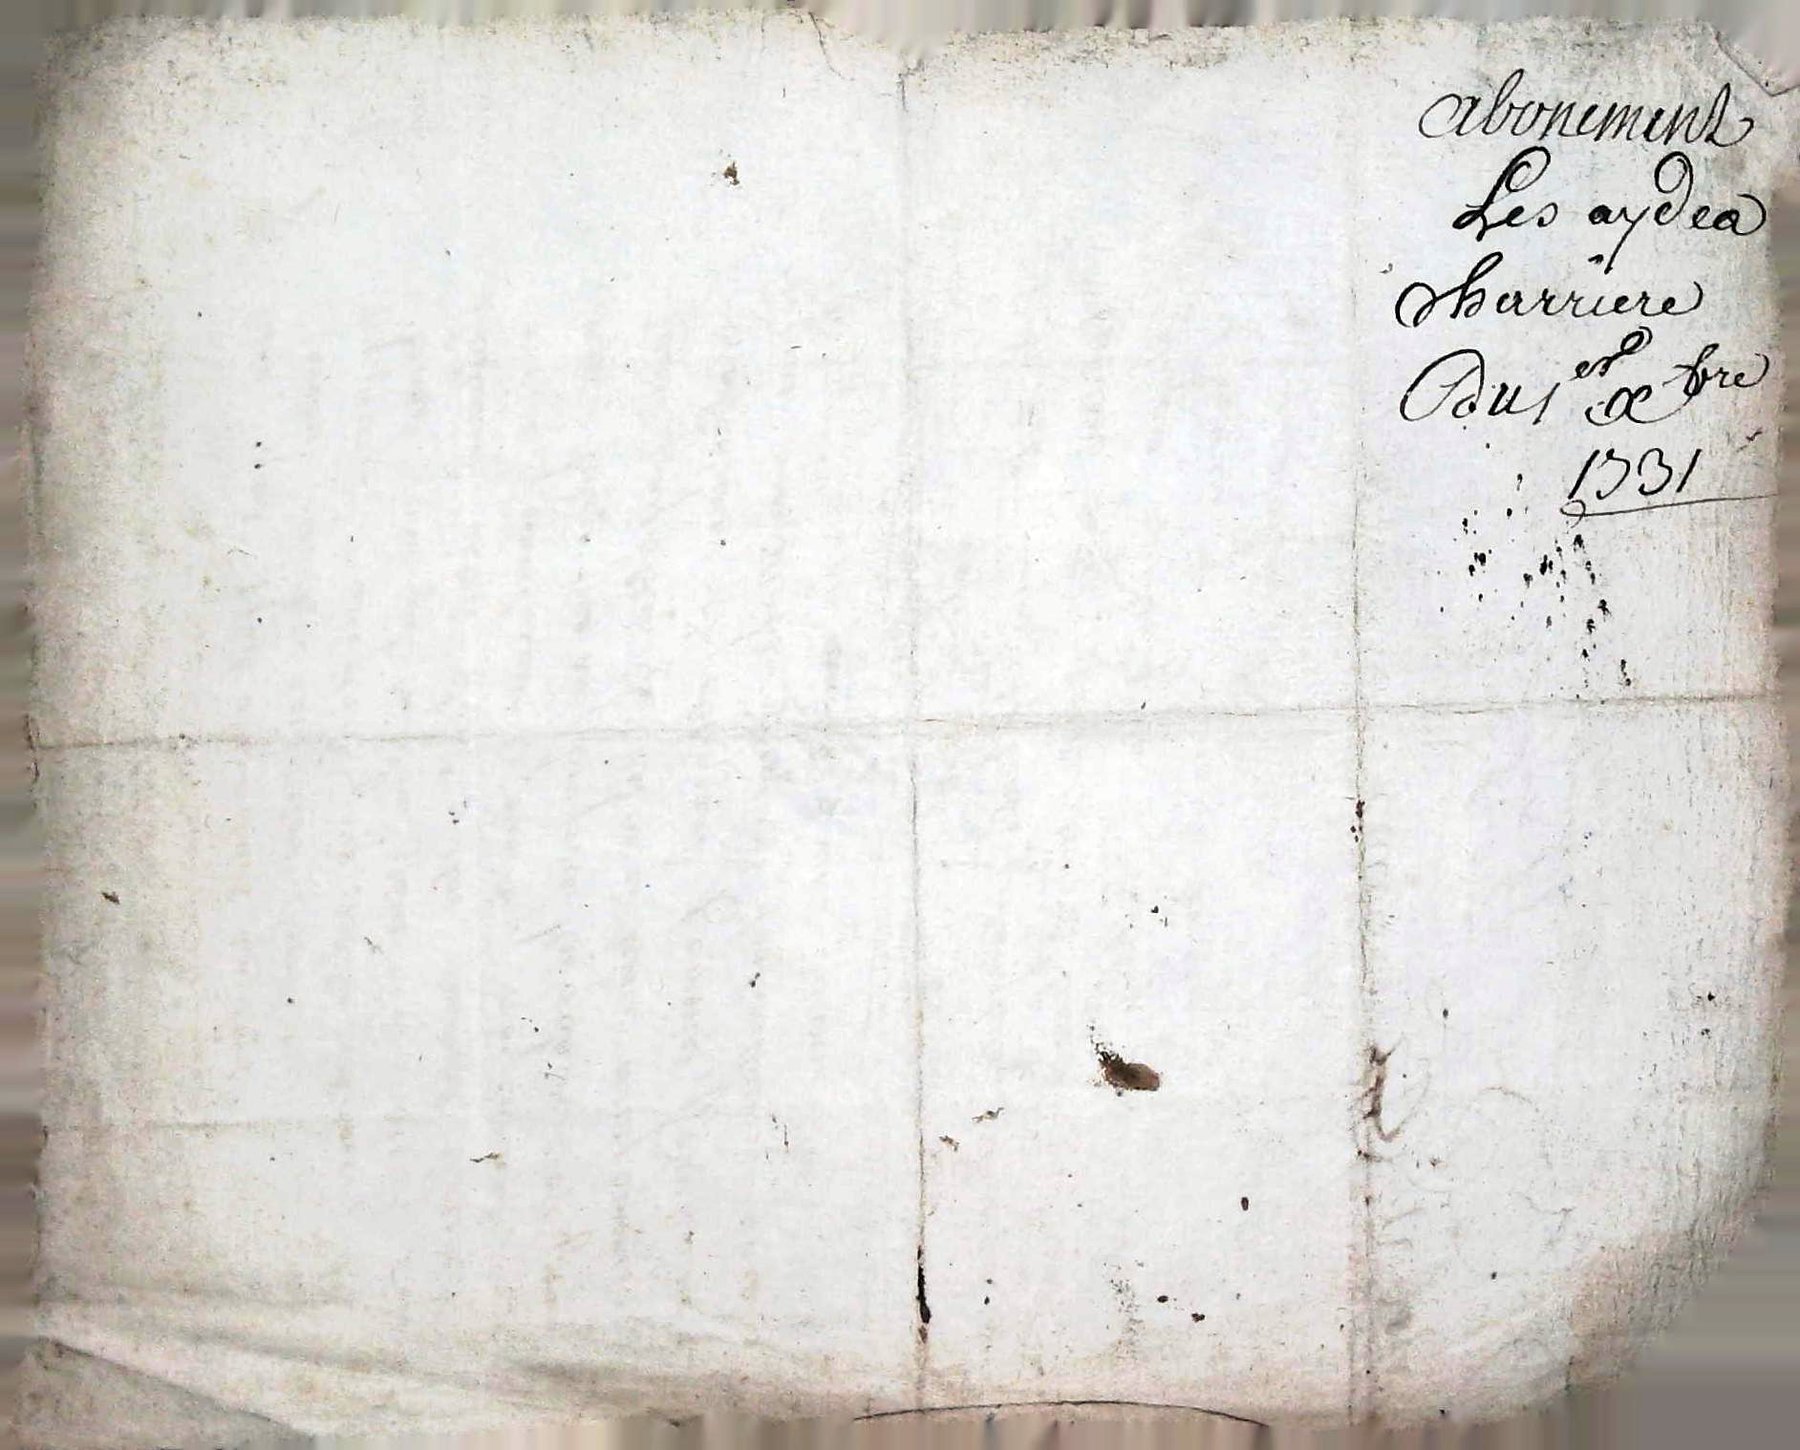 abonement
Les aydes
Charriere
Du 1er Xbre
1731